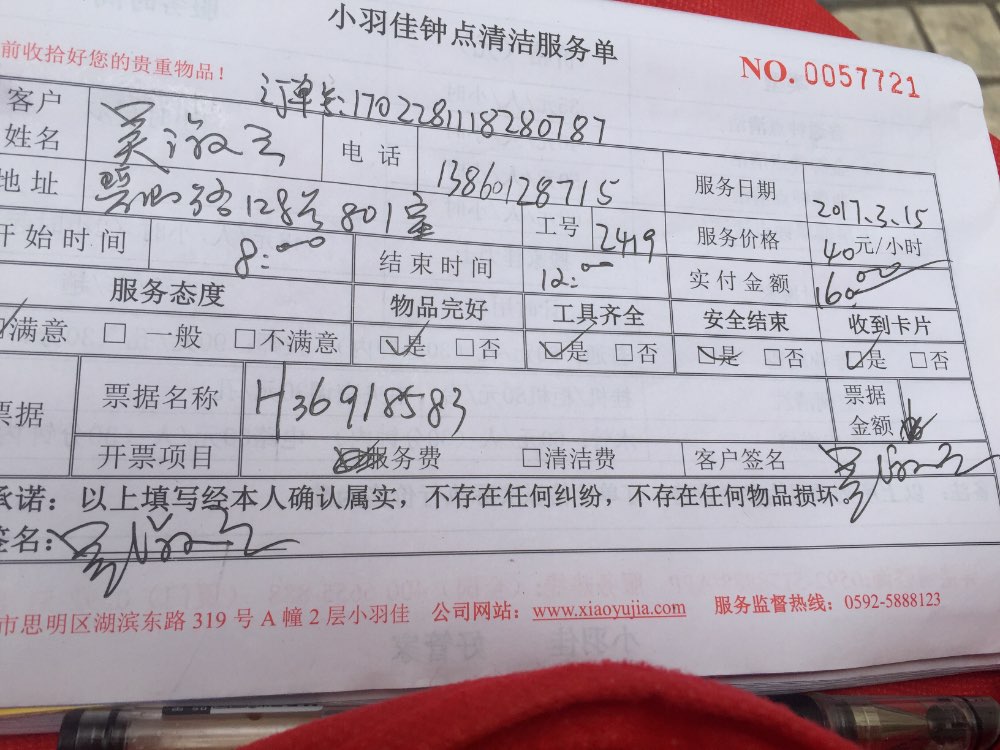 小羽佳钟点清洁服务单
前收拾好您的贵重物品！
NO. 0057721
订单号:1702281118280787
客户姓名 吴淑云 电 话 13860128715 服务日期 2017.3.15
地 址 128号801室 工号 2419 服务价格 40元/小时
开始时间 8:00 结束时间 12:00 实付金额 160
服务态度 物品完好 工具齐全 安全结束 收到卡片
满意 □ 一般 □不满意 □是 □否 □是 □否 □是 □否 □是 □否
票据 票据名称 H36918583 票据金额
开票项目 □服务费 □清洁费 客户签名 吴淑云
承诺：以上填写经本人确认属实，不存在任何纠纷，不存在任何物品损坏。
签名: 吴淑云
市思明区湖滨东路 319 号 A 幢 2 层小羽佳 公司网站：www.xiaoyujia.com 服务监督热线：0592-5888123